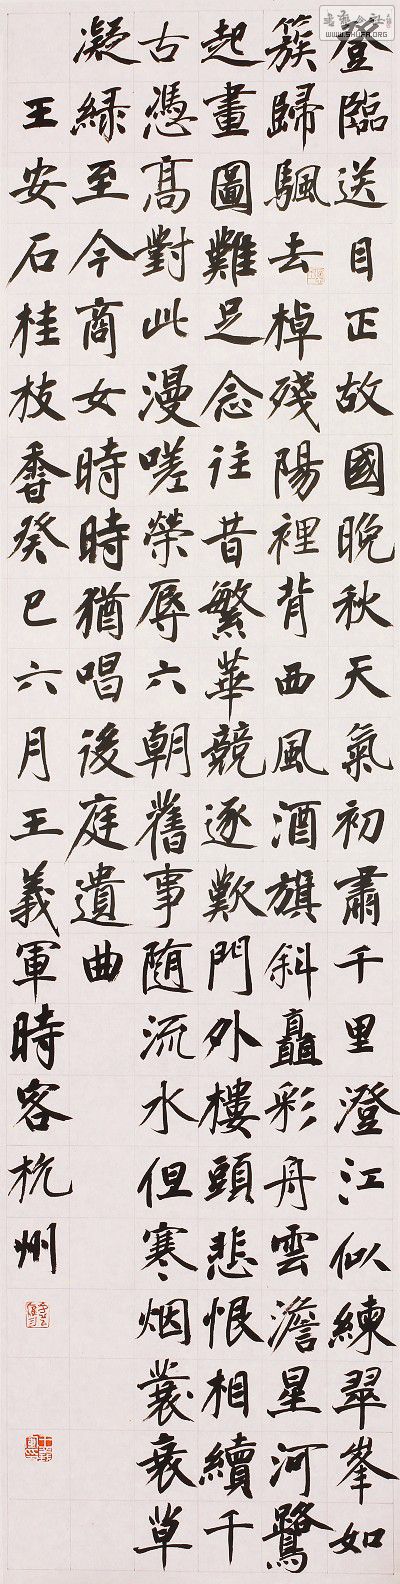 登臨送目正故國晚秋天氣初肅千里澄江似練翠峯如
簇歸颿去棹殘陽裡背西風酒旗斜矗彩舟雲澹星河鷺
起畫圖難足念往昔繁華競逐歎門外樓頭悲恨相續千
古憑高對此漫嗟榮辱六朝舊事随流水但寒烟蓑衰草
凝綠至今商女時時猶唱後庭遺曲
王安石桂枝香癸巳六月王義軍時客杭州
WWW.SHUFA.ORG